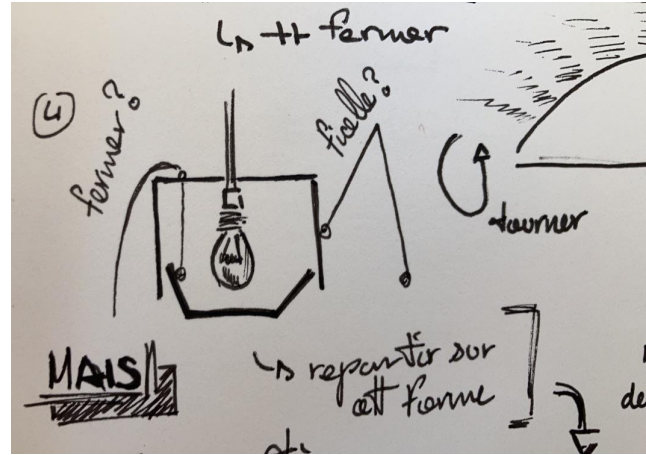 ↳ ++ fermer
4
fermer?
ficelle?
tourner
MAIS
↳ repartir sur
forme
de